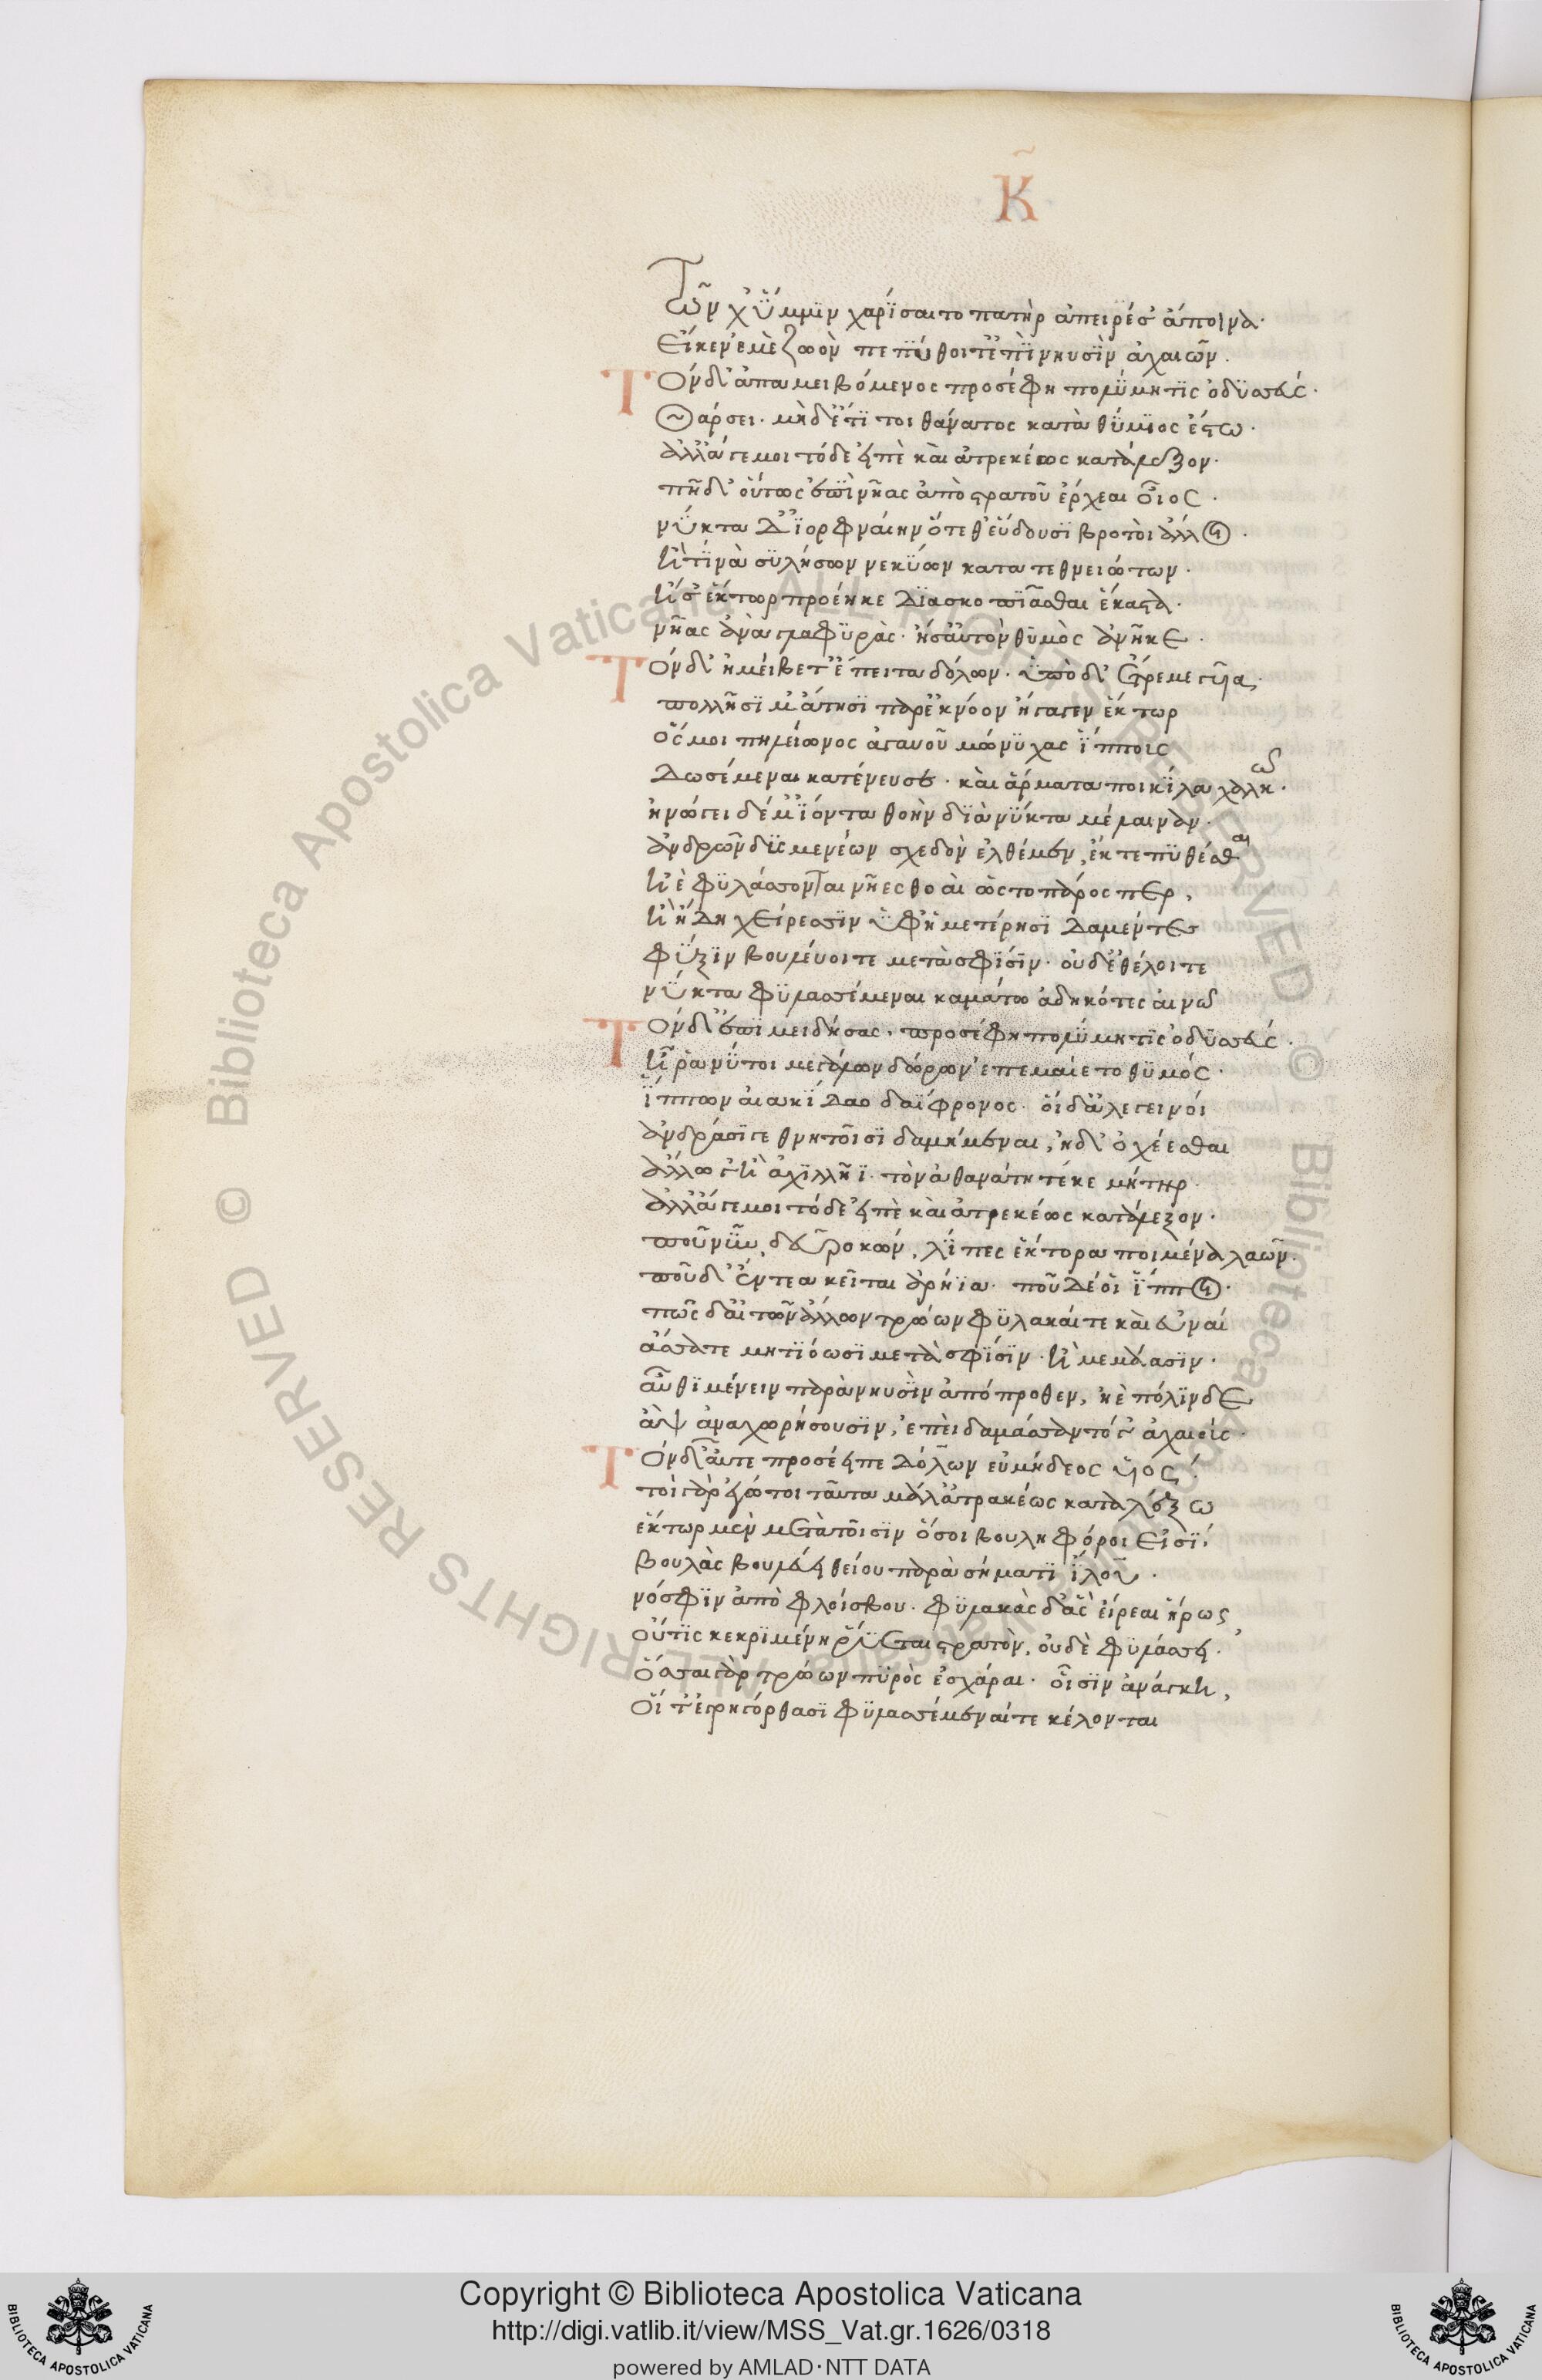 Κ̃
Τῶν χ' ὔμμϊν χαρίσαιτο πατὴρ ἀπειρέσ' ἄποινα·
Εἴκεν ἐμὲ ζωὸν πεπύθοιτ' ἐπὶ νηυσὶν ἀχαιῶν.
Τὸν δ' ἀπαμειβόμενος προσέφη πολύμητις ὀδυσσεύς·
Θάρσει· μὴδ' ἔτι τοι θάνατος καταθύμιος ἔστω·
ἀλλ' ἄγε μοι τόδε εἰπὲ καὶ ἀτρεκέως κατάλεξον·
πῆ δ' οὕτως ἐπὶ νῆας ἀπὸ στρατοῦ ἔρχεαι οἶος·
νύκτα δι' ὀρφναίην ὅτε θ' εὕδουσι βροτοὶ ἄλλοι·
ἢ τινὰ συλήσων νεκύων κατατεθνειώτων·
ἤ σ' ἕκτωρ προέηκε διασκοπιᾶσθαι ἕκαστα·
νῆας ἀνὰ γλαφυρὰς· ἦ σ' αὐτὸν θυμὸς ἀνῆκε·
Τὸν δ' ἠμείβετ' ἔπειτα δόλων· ὑπὸ δ' ἔτρεμε γυῖα·
πολλῆσί μ' ἄτησι παρὲκ νόον ἤγαγεν ἕκτωρ
ὅς μοι πηλείωνος ἀγαυοῦ μώνυχας ἵππους
Δωσέμεναι κατένευσε· καὶ ἅρματα ποικίλα χαλκῶ·
ἠνώγει δέ μ' ἰόντα θοὴν διὰ νύκτα μέλαιναν·
ἀνδρῶν δυσμενέων σχεδὸν ἐλθέμεν, ἔκ τε πυθέσθαι
ἠὲ φυλάσσονται νῆες θοαὶ ὡς τοπάρος περ,
ἢ ἤδη χείρεσσιν ὑφ' ἡμετέρησι δαμέντες
φύξιν βουλεύοιτε μετὰ σφίσιν· οὐδ' ἐθέλοιτε
νύκτα φυλασσέμεναι καμάτω ἀδηκότες αἰνῶ
Τὸν δ' ἐπιμειδήσας· προσέφη πολύμητις ὀδυσσεύς·
ἦ ῥά νύ τοι μεγάλων δώρων ἐπεμαίετο θυμός·
ἵππων αἰακίδαο δαΐφρονος· οἱ δ' ἀλεγεινοὶ
ἀνδράσί γε θνητοῖσι δαμήμεναι, ἠδ' ὀχέεσθαι
ἄλλω γ' ἢ ἀχιλλῆϊ· τὸν ἀθανάτη τέκε μήτηρ·
ἀλλ' ἄγε μοι τόδε εἰπὲ καὶ ἀτρεκέως κατάλεξον·
ποῦ νῦν, δεῦρο κιών, λίπες ἕκτορα ποιμένα λαῶν·
ποῦ δ' ἔντεα κεῖται ἀρήϊα· ποῦ δέ οἱ ἵπποι·
πῶς δαὶ τῶν ἄλλων τρώων φυλακαί τε καὶ εὐναί
ἅσσά τε μητιόωσι μετὰ σφίσιν· ἢ μεμάασιν·
αὖθι μένειν παρὰ νηυσὶν ἀπόπροθεν, ἠὲ πόλινδε
ἂψ ἀναχωρήσουσιν, ἐπεὶ δαμάσαντό γ' ἀχαιούς·
Τὸν δ' αὖτε προσέειπε Δόλων εὐμήδεος υἱός·
τοὶ γὰρ ἐγώ τοι ταῦτα μάλ' ἀτρακέως καταλέξω
ἕκτωρ μὲν μετὰ τοῖσιν ὅσοι βουληφόροι εἰσί,
βουλὰς βουλεύει θείου παρὰ σήματι ἴλου·
νόσφιν ἀπὸ φλοίσβου· φυλακὰς δ' ἃς εἴρεαι ἥρως
οὔτις κεκριμένη ῥύεται στρατὸν, οὐδὲ φυλάσσει·
ὅσσαι γὰρ τρώων πυρὸς ἐσχάραι· οἷσιν ἀνάγκη,
οἵ τ' ἐγρηγόρθασι φυλασσέμεναί τε κέλονται
Copyright © Biblioteca Apostolica Vaticana
http://digi.vatlib.it/view/MSS_Vat.gr.1626/0318
powered by AMLAD·NTT DATA
BIBLIOTECA APOSTOLICA VATICANA
BIBLIOTECA APOSTOLICA VATICANA
© Biblioteca Apostolica Vaticana ALL RIGHTS RESERVED © Biblioteca Apostolica Vaticana ALL RIGHTS RESERVED